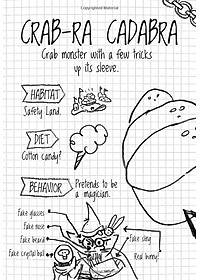 CRAB-RA CADABRA
Crab monster with a few tricks
up its sleeve.
HABITAT
Safety Land.
DIET
Cotton candy?
BEHAVIOR
Pretends to be
a magician.
Fake glasses
Fake nose
Fake beard
Fake crystal ball
Fake sling
Real bunny!